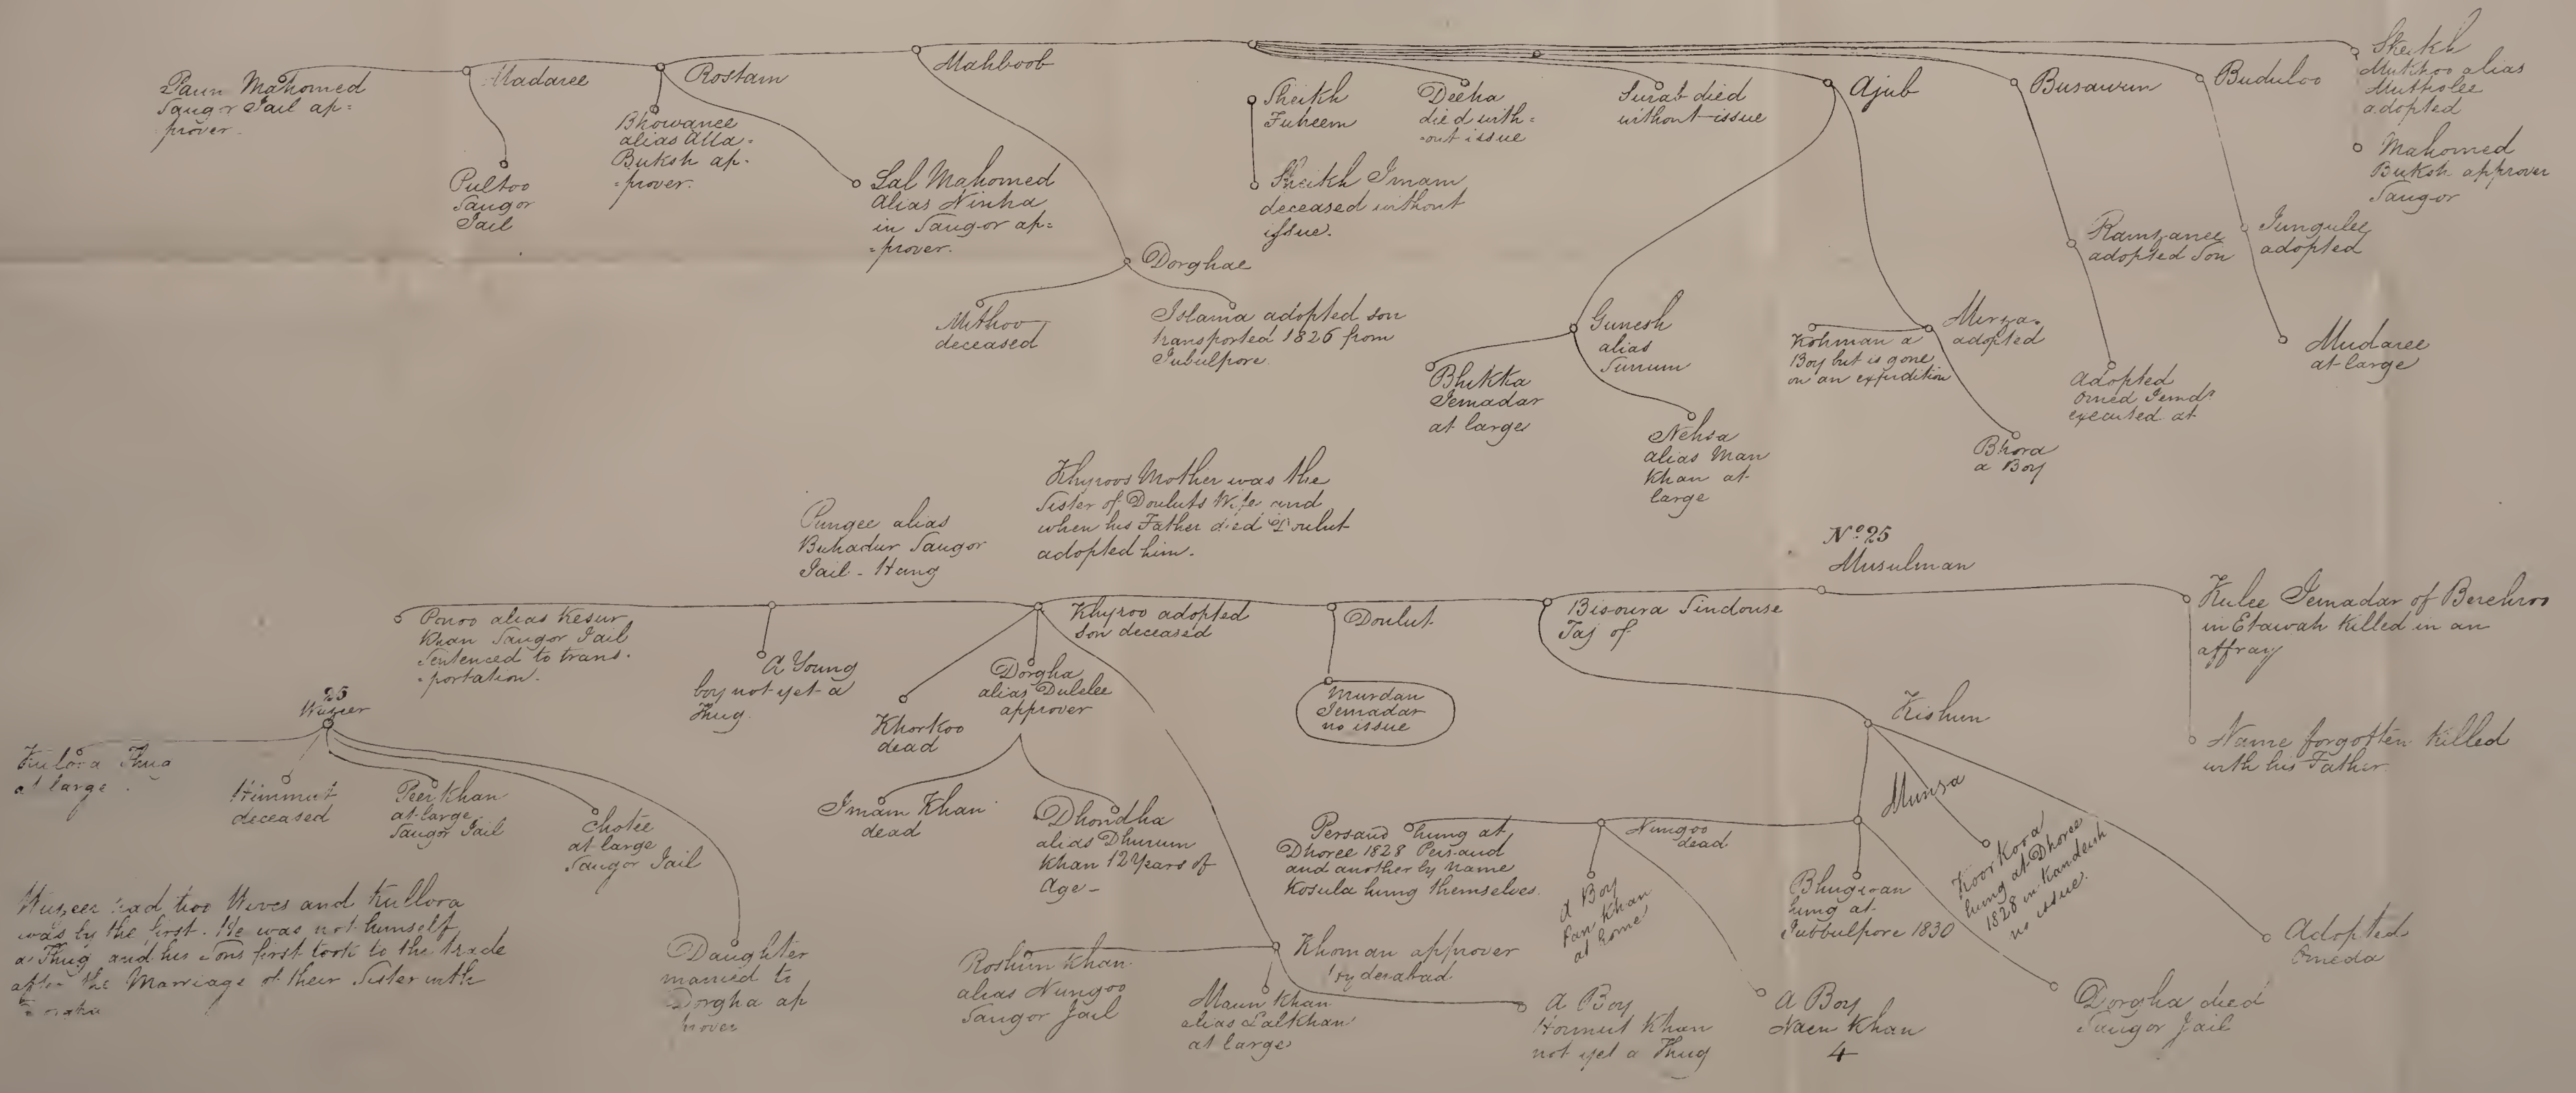 Paun Mahomed
Saugor Jail ap=
prover.
Madaree
Pultoo
Saugor
Jail
Rostam
Bhowanee
alias Alla=
Buksh ap-
-prover.
Lal Mahomed
alias Ninha
in Saugor ap=
=prover.
Mahboob
Dorghae
Mithoo
deceased
Islama adopted son
transported 1826 from
Jubulpore.
Sheikh
Fuheem
Sheikh Imam
deceased without
issue.
Deeha
died with=
-out issue
Surab died
without issue
Ajub
Gunesh
alias
Bhikka
Jemadar
at large
Nehsa
alias Man
Khan at
large
Mirza
adopted
Kohman a
Boy but is gone
on an expedition
Bhora
a Boy
Busawun
Ramzanee
adopted Son
Adopted
Omed Jemdr
executed at
Buduloo
Jungulee
adopted
Mudaree
at large
Sheikh
alias
adopted
Mahomed
Buksh approver
Saugor
Khyroos Mother was the
Sister of Douluts Wife and
when his Father died Doulut
adopted him.
Pungee alias
Buhadur Saugor
Jail - Hung
No. 25
Musulman
Ponoo alias Kesur
Khan Saugor Jail
Sentenced to trans-
-portation.
A Young
boy not yet a
Thug.
Khyroo adopted
Son deceased
Khorkoo
dead
Dorgha
alias Dulelee
approver
Imam Khan
dead
Dhondha
alias Dhurum
Khan 12 Years of
Age -
Doulut
Murdan
Jemadar
no issue
Bisoura Sindouse
Taj of
Kulee Jemadar of Berehroo
in Etawah killed in an
affray
Name forgotten killed
with his Father
Kishun
Munsa
Koorkoora
hung at Dhoree
1828 in Kandeish
no issue.
Adopted
Omeda
Persaud hung at
Dhoree 1828 Persaud
and another by Name
Kosula hung themselves.
Nungoo
dead
A Boy
Pan Khan
at home
A Boy
Naen Khan
4
Bhugwan
hung at
Jubbulpore 1830
Dorgha died
Saugor Jail
Khoman approver
Hyderabad
Roshun Khan
alias Nungoo
Saugor Jail
Maun Khan
alias Lalkhan
at large
A Boy
Hormut Khan
not yet a Thug
25
Wuzeer
Thug
at large.
Himmut
deceased
Peer Khan
at large
Saugor Jail
Chotee
at large
Saugor Jail
Daughter
married to
Dorgha ap
prover
Wuzeer had two Wives and Kullora
was by the first. He was not himself
a Thug and his Sons first took to the trade
after the Marriage of their Sister with
Dorgha